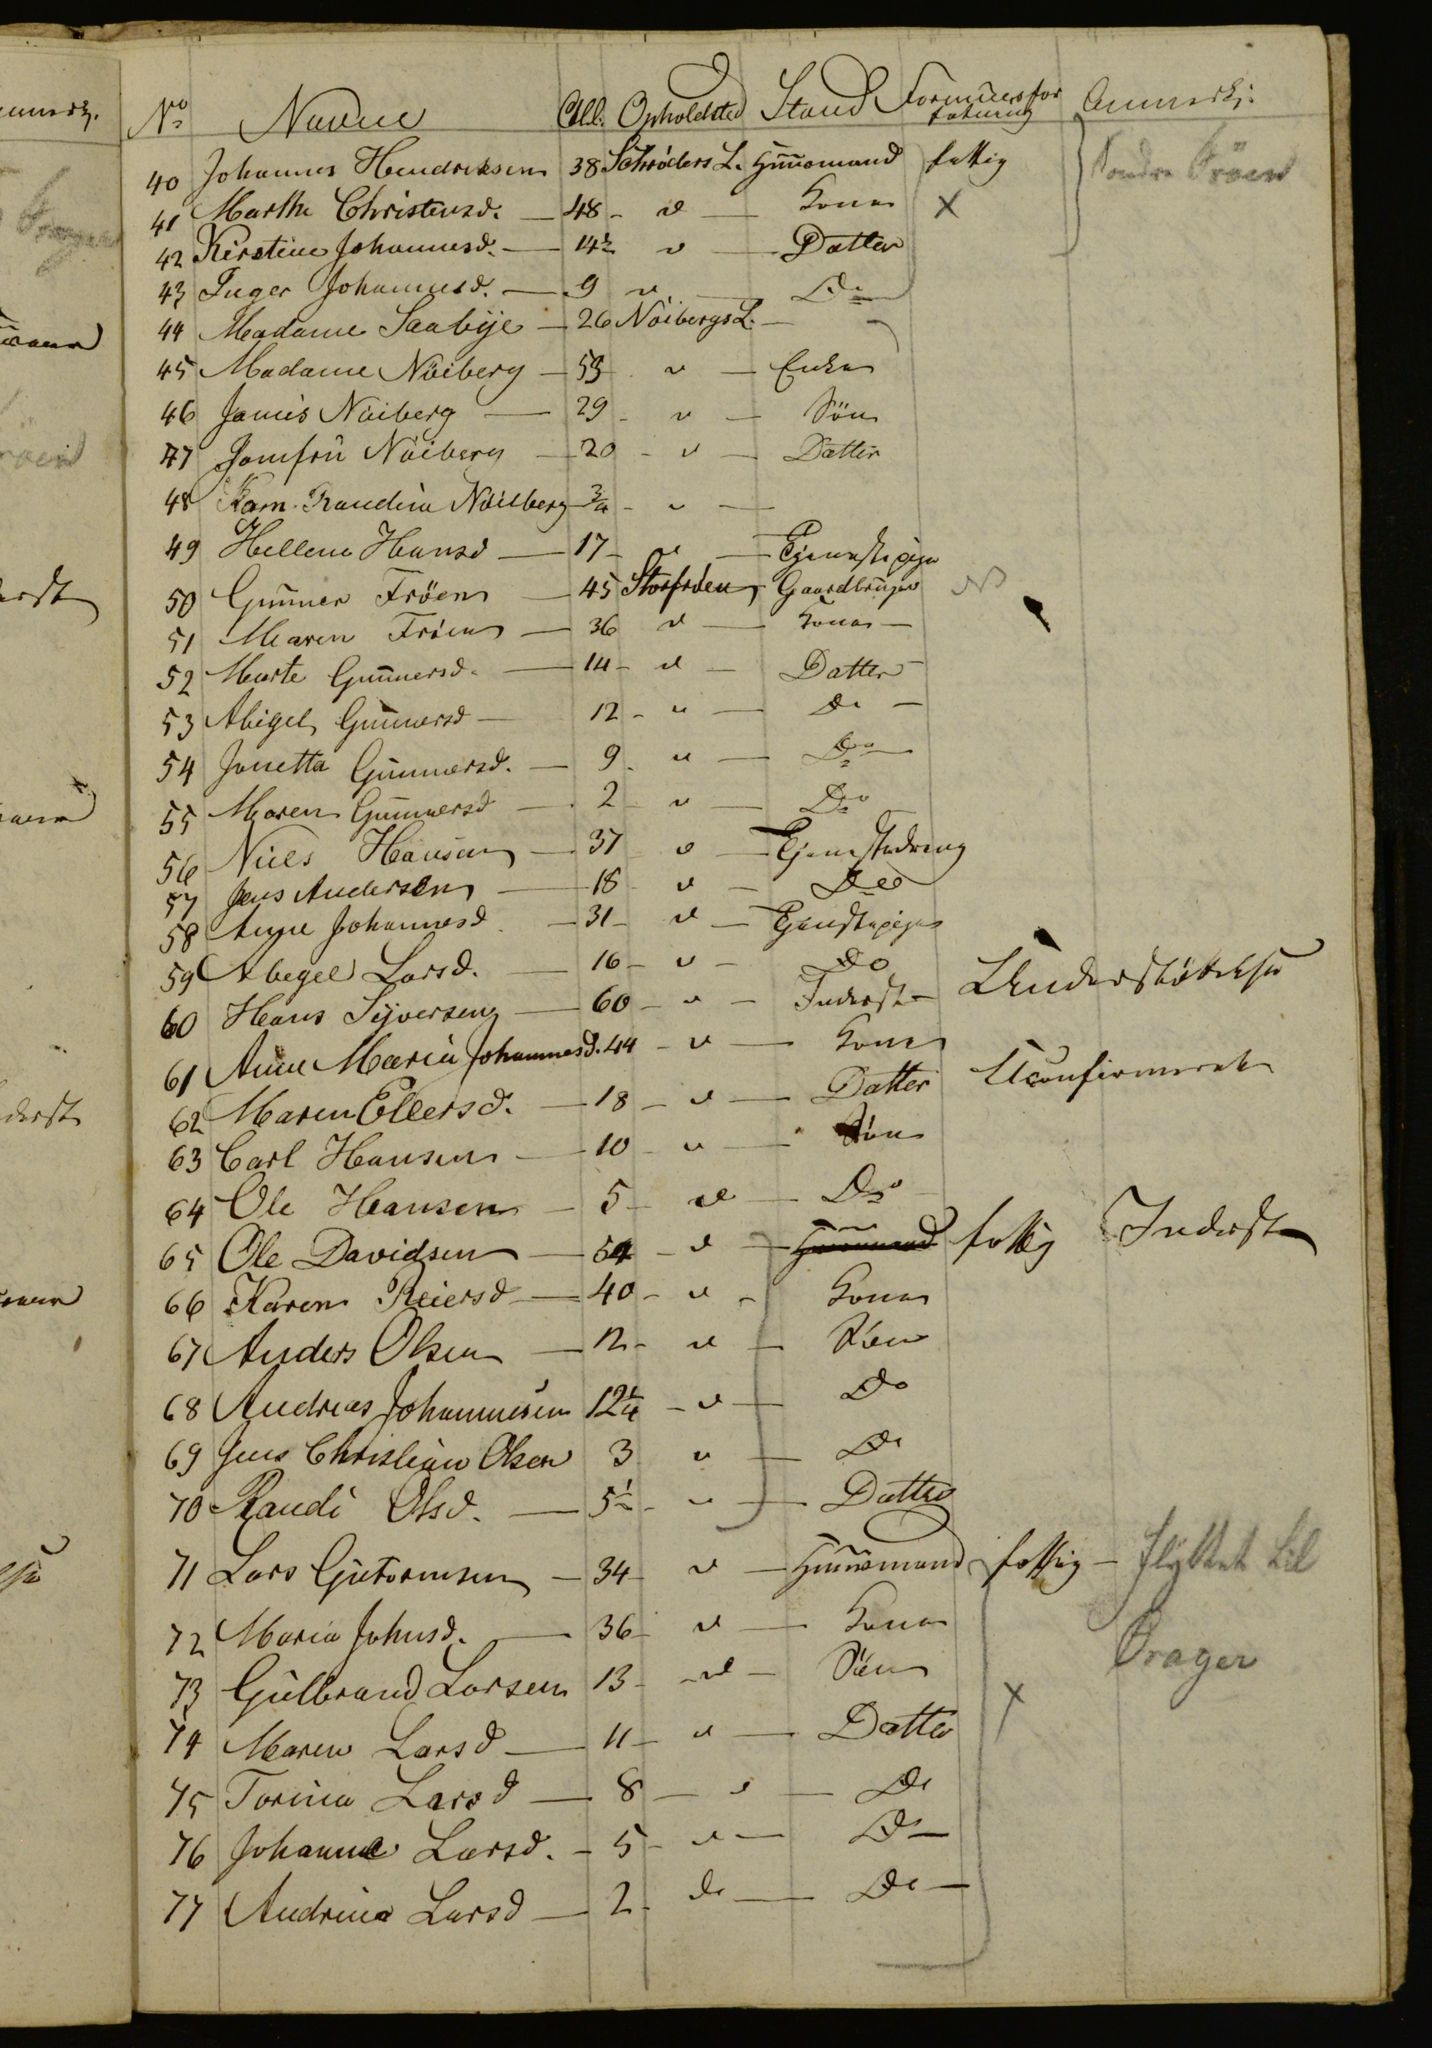 No Navne Ald. Opholdsted Stand Formues for fatning Anmerkn:
40 Johannes Hendreksen 38 Schröders L. Huusmand fattig Søndre Frøen
41 Marthe Christensd. — 48 - " — Kone X
42 Kirstine Johannesd. — 14½ " — Datter
43 Inger Johannesd. — 9 " — Do
44 Madame Saabÿe — 26 Nöibergs L. —
45 Madame Nöiberg — 53 " — Enke
46 Janus Nöiberg — 29 - " — Sön
47 Jomfrü Nöiberg — 20 - " — Datter
48 Karn. Randine Nöiberg ¾ - " —
49 Hellene Hansd — 17 - " — Tjenestepige
50 Gunner Fröen — 45 Storfröen Gaardbruger
51 Maren Fröen — 36 " — Kone —
52 Marte Gunnersd. — 14 - " — Datter
53 Abigel Gunnersd — 12 - " — Do —
54 Jonetta Gunnersd. — 9 - " — Do
55 Maren Gunnersd — 2 " — Do
56 Niels Hansen — 37 " — Tjenestedreng
57 Jens Andersen — 18 " — Do
58 Anne Johannesd — 31 - " — Tjenestepige
59 Abegel Larsd. — 16 - " — Do
60 Hans Syversen — 60 - " — Inderst — Understöttelse
61 Anne Maria Johannesd. 44 - " — Kone
62 Maren Ellersd. — 18 - " — Datter Uconfirmeret
63 Carl Hansen — 10 - " — Sön
64 Ole Hansen — 5 - " — Do
65 Ole Davidsen — 54 - " — Huusmand fattig Inderst
66 Karen Reiersd — 40 - " - Kone
67 Anders Olsen — 12 - " — Sön
68 Andreas Johannesen 12¼ - " — Do
69 Jens Christian Olsen 3 " — Do
70 Randi Olsd. — 5½ - " — Datter
71 Lars Gutormsen — 34 " — Huusmand fattig — flyttet til
72 Maria Johnsd. — 36 - " — Kone Brager
73 Gulbrand Larsen 13 - " — Sön X
74 Maren Larsd — 11 - " — Datter
75 Torina Larsd — 8 — " — Do
76 Johanne Larsd. - 5 - " — Do —
77 Andrine Larsd — 2 - do — Do —